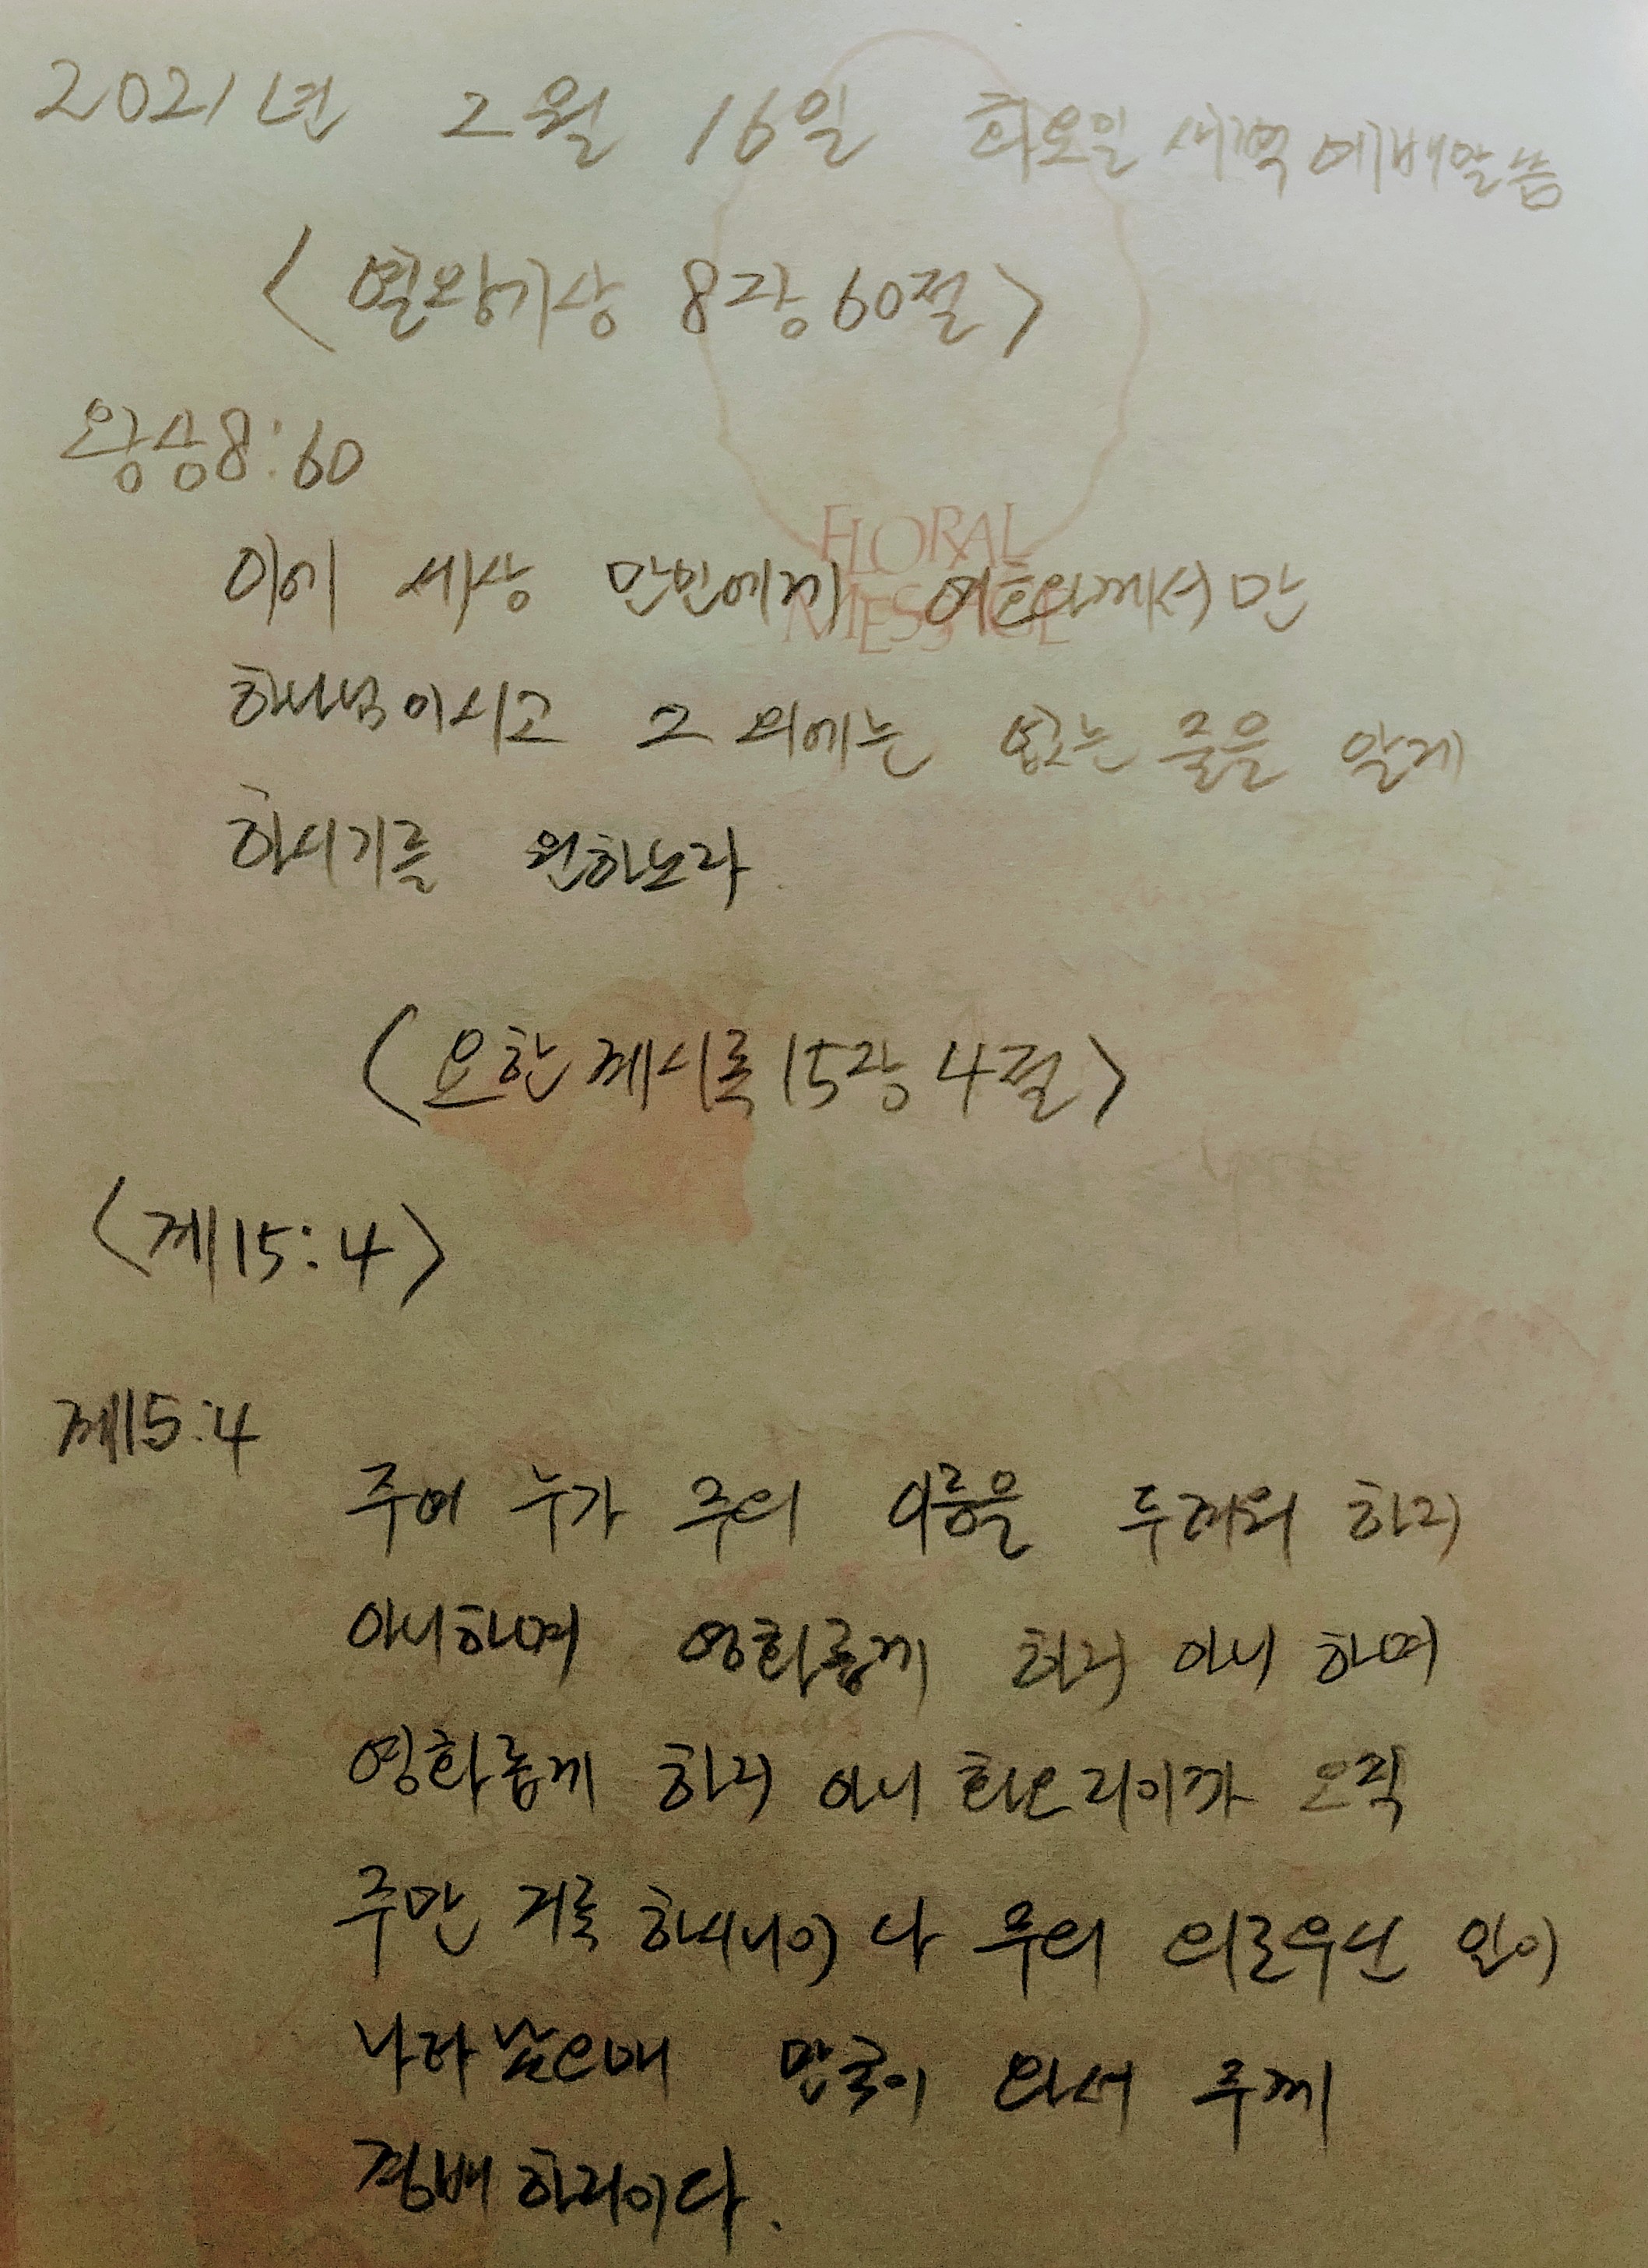 2021년 2월 16일 화요일 새벽예배말씀
<열왕기상 8장 60절>
왕상8:60
FLORAL
MESSAGE
이에 세상 만민에게 여호와께서만
하나님이시고 그 외에는 없는 줄을 알게
하시기를 원하노라.
<요한계시록 15장 4절>
<계15:4>
계15:4
주여 누가 주의 이름을 두려워 하지
아니하며 영화롭게 하지 아니 하며
영화롭게 하지 아니 하오리이까 오직
주만 거룩 하시니이다 주의 의로우신 일이
나타났으매 만국이 와서 주께
경배 하리이다.